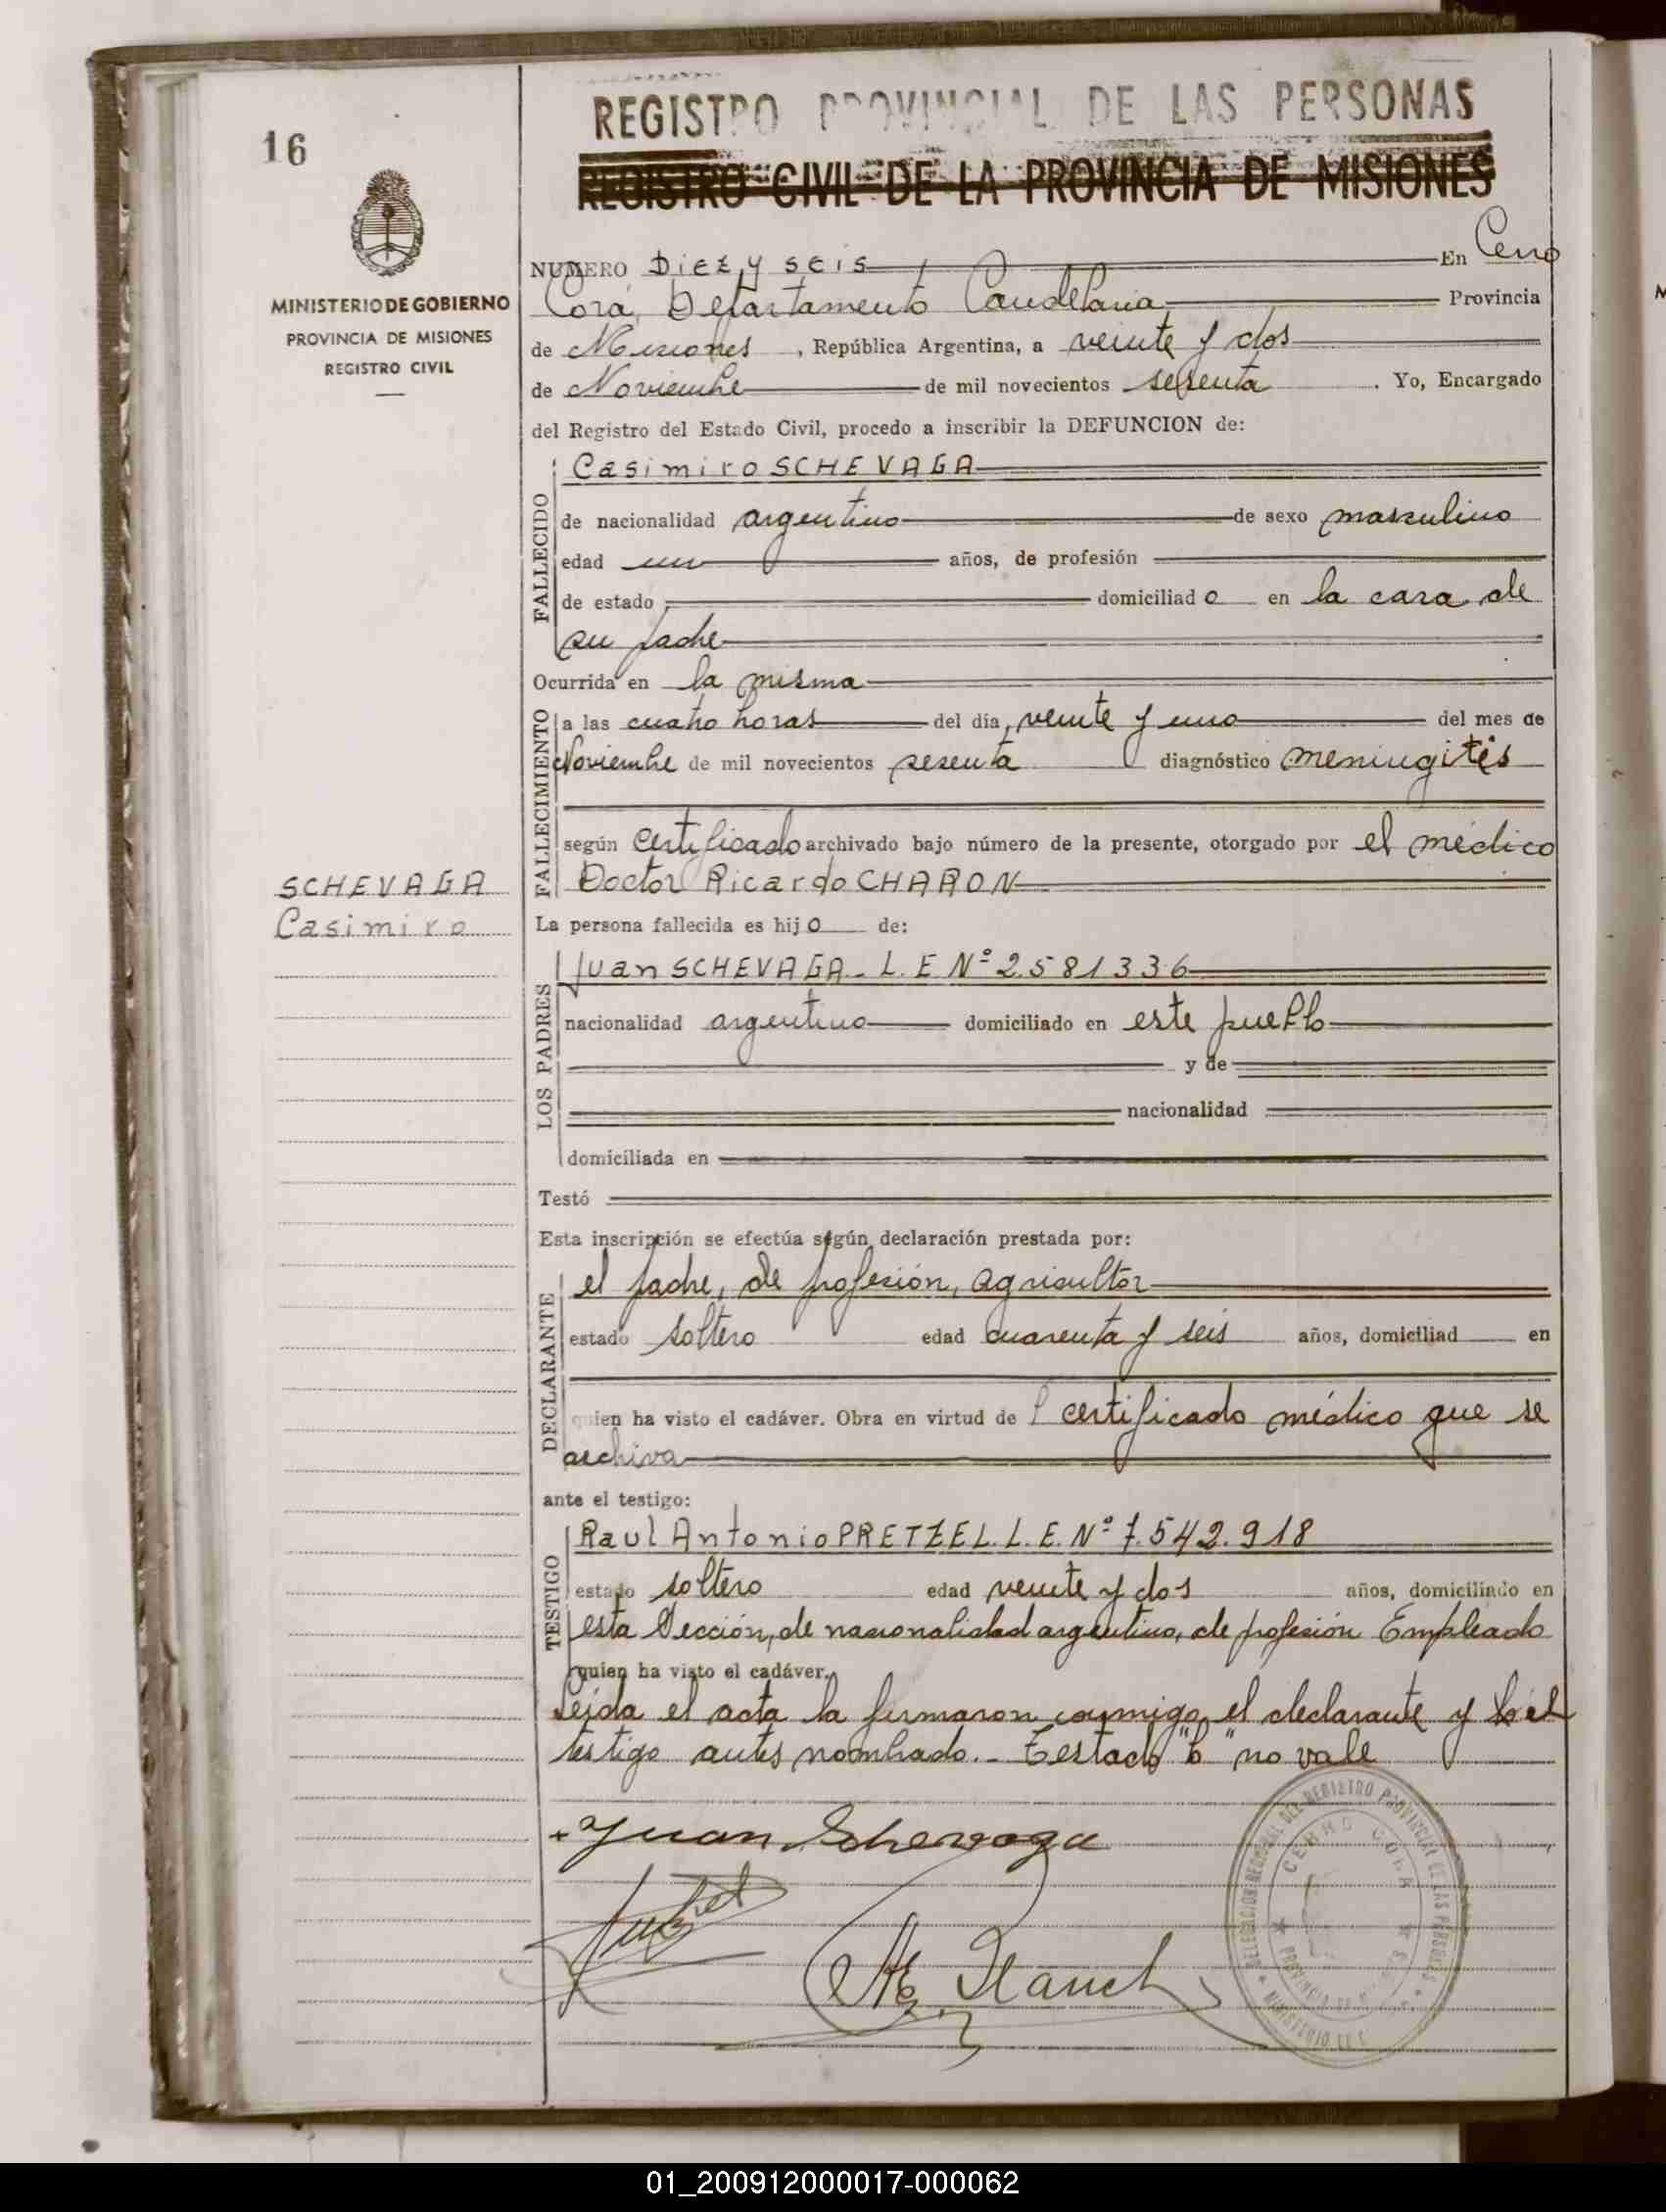 16
MINISTERIO DE GOBIERNO
PROVINCIA DE MISIONES
REGISTRO CIVIL
SCHEVAGA
Casimiro
REGISTRO PROVINCIAL DE LAS PERSONAS
REGISTRO CIVIL DE LA PROVINCIA DE MISIONES
NUMERO Diez y seis En Cerro
Corá, Departamento Candelaria Provincia
de Misiones, República Argentina, a veinte y dos
de Noviembre de mil novecientos sesenta. Yo, Encargado
del Registro del Estado Civil, procedo a inscribir la DEFUNCION de:
FALLECIDO
Casimiro SCHEVAGA
de nacionalidad argentino de sexo masculino
edad un años, de profesión
de estado domiciliado en la casa de
su padre
Ocurrida en la misma
FALLECIMIENTO
a las cuatro horas del día, veinte y uno del mes de
Noviembre de mil novecientos sesenta diagnóstico meningitis
según Certificado archivado bajo número de la presente, otorgado por el médico
Doctor Ricardo CHARON
La persona fallecida es hijo de:
LOS PADRES
Juan SCHEVAGA - L. E Nº 2581336
nacionalidad argentino domiciliado en este pueblo
y de
nacionalidad
domiciliada en
Testó
Esta inscripción se efectúa según declaración prestada por:
DECLARANTE
el padre, de profesión, agricultor
estado soltero edad cuarenta y seis años, domiciliad en
quien ha visto el cadáver. Obra en virtud de l certificado médico que se
archiva
ante el testigo:
TESTIGO
Raul Antonio PRETZEL. L. E. Nº 7.542.918
estado soltero edad veinte y dos años, domiciliado en
esta Sección, de nacionalidad argentino, de profesión Empleado
quien ha visto el cadáver.
Leida el acta la firmaron conmigo el declarante y lo el
testigo antes nombrado.- Testado "lo" no vale
Juan Schevaga
DELEGACION REGIONAL DEL REGISTRO PROVINCIAL DE LAS PERSONAS
CERRO CORA
01_200912000017-000062